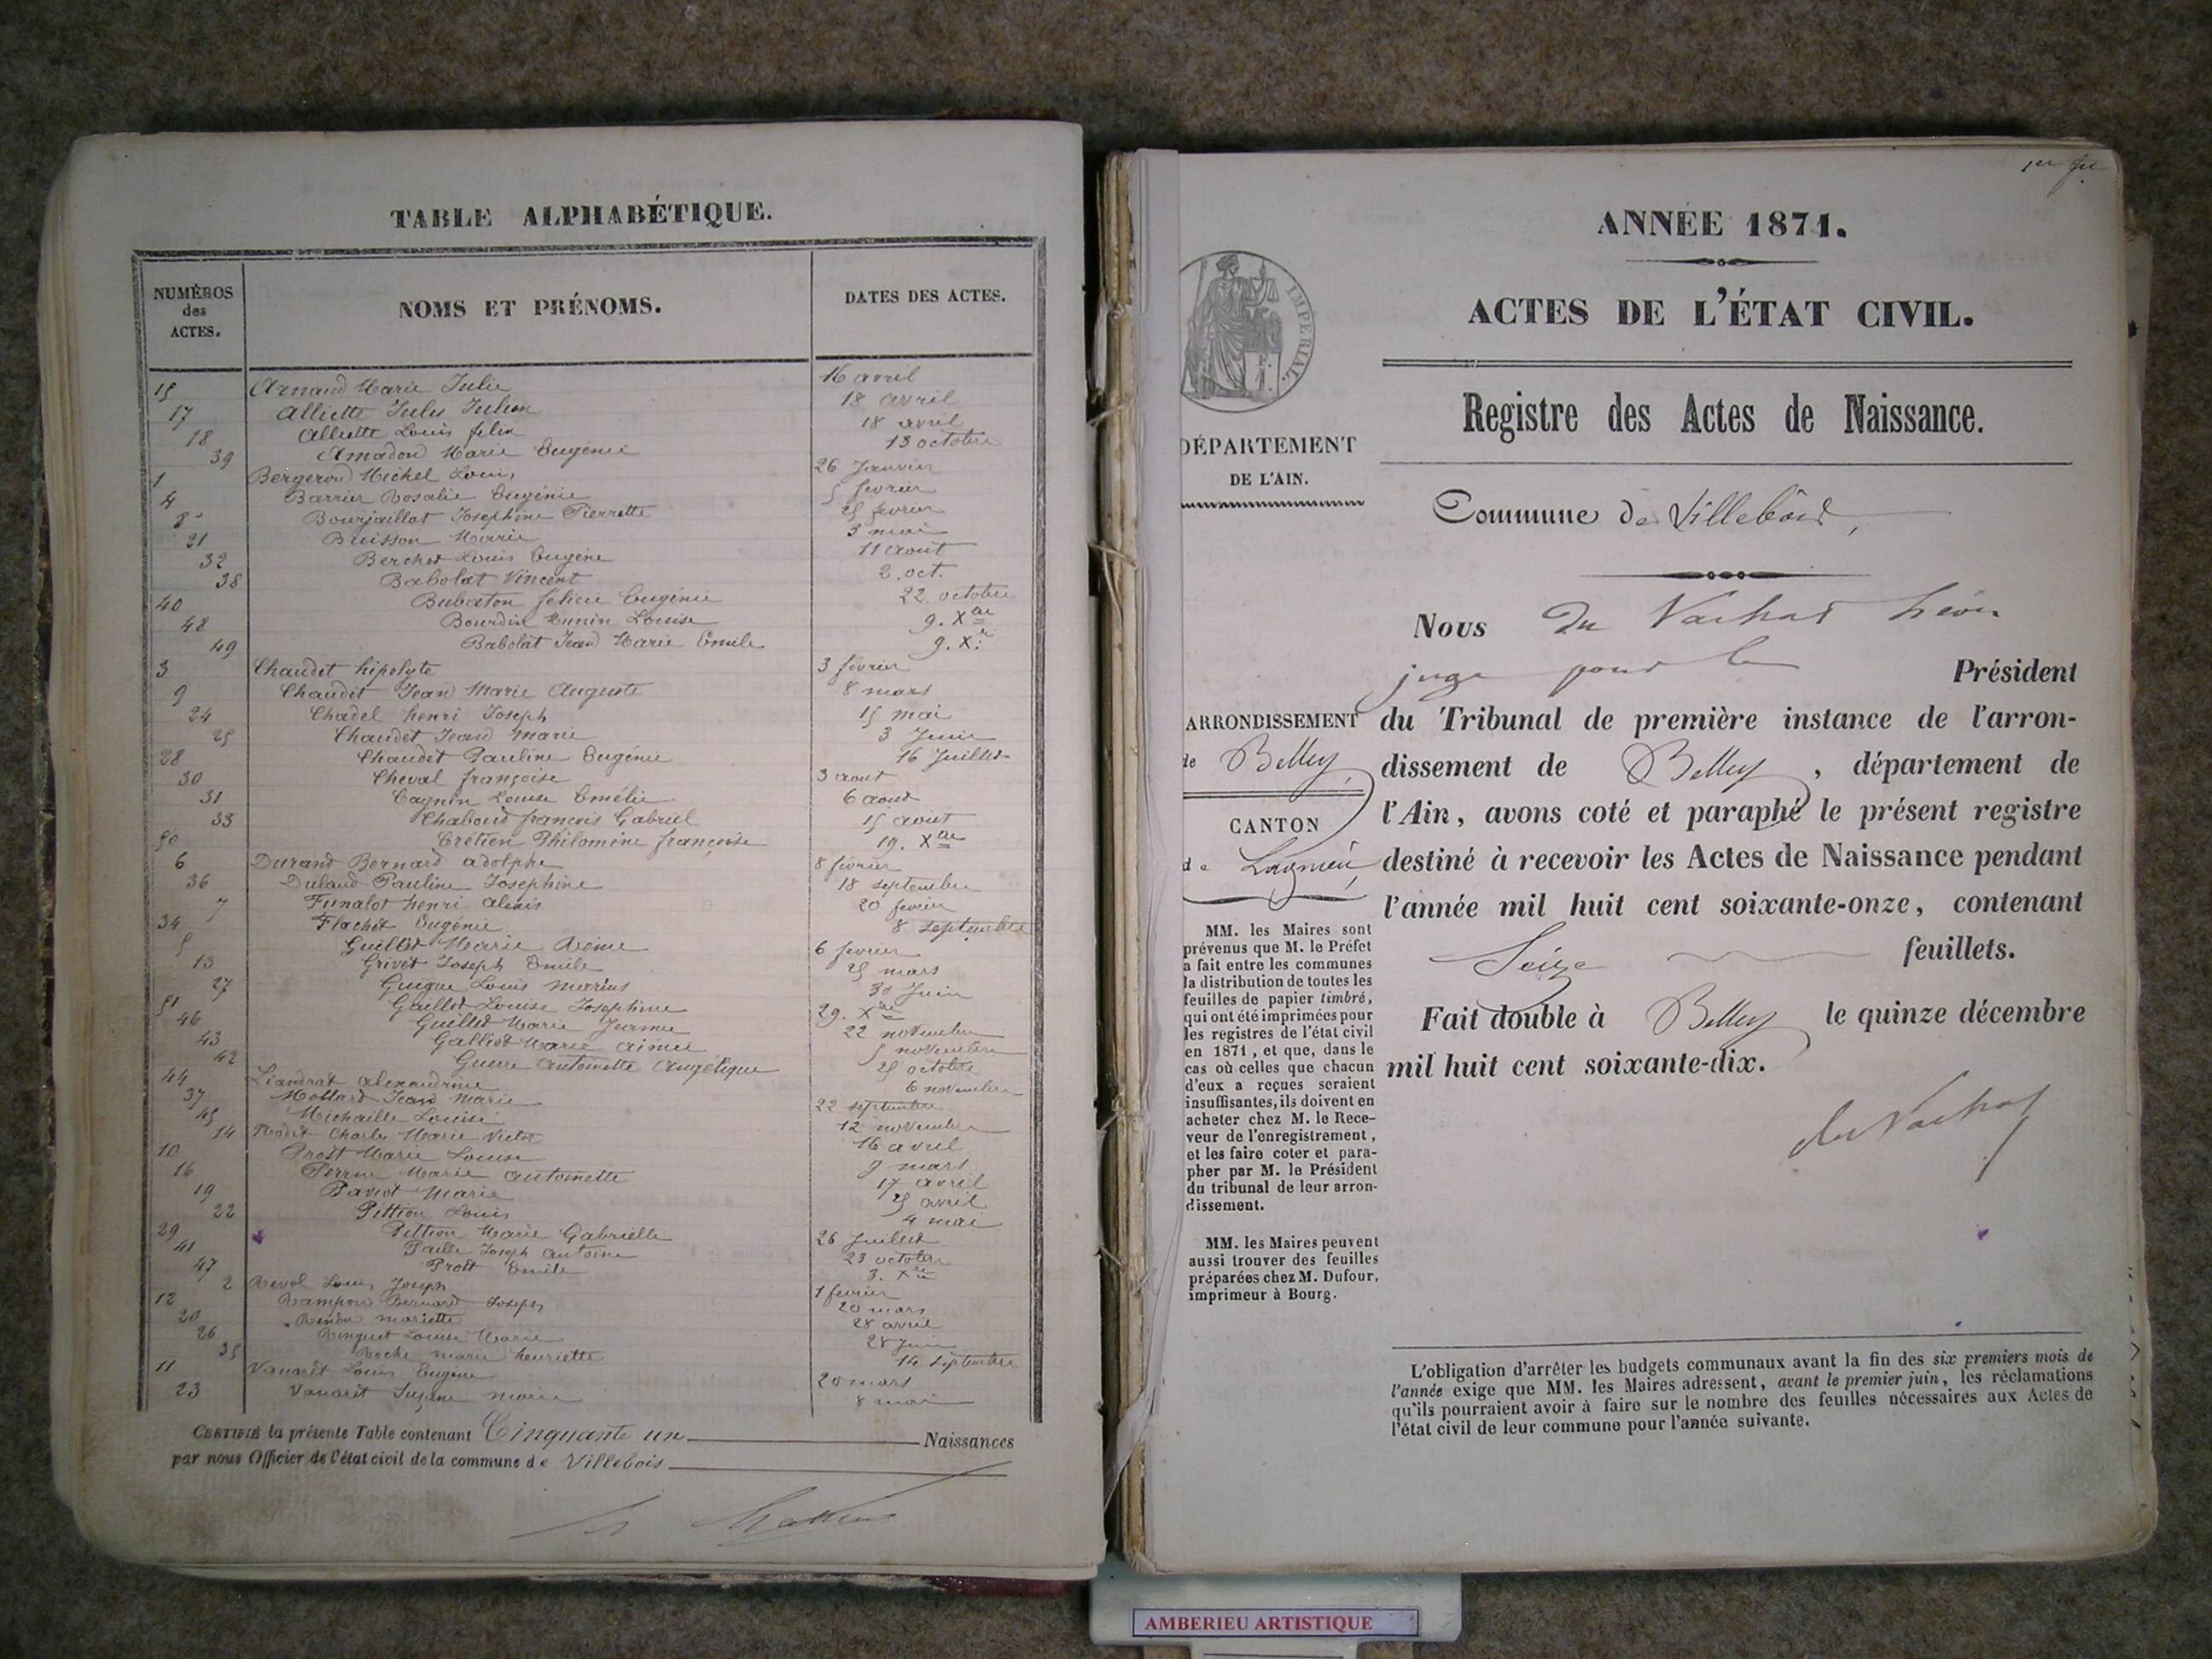 TABLE ALPHABÉTIQUE.
NUMÉROS des ACTES.
NOMS ET PRÉNOMS.
DATES DES ACTES.
15 Arnaud Marie Julie 16 avril
17 Alliette Jules Julien 18 avril
18 Alliette Louis felix 18 avril
39 Amadou Marie Eugénie 13 octobre
1 Bergeron Michel Louis 26 Janvier
4 Barrier Rosalie Eugénie 5 fevrier
8 Bourjaillat Joséphine Pierrette 25 fevrier
21 Buisson Marie 3 mai
32 Berchet Louis Eugène 11 aout
38 Babolat Vincent 2. oct.
40 Bubaton félicie Eugénie 22. octobre
48 Bourdin Louise 9. Xbre
49 Babolat Jean Marie Emile 9. Xre
3 Chaudet hipolyte 3 février
9 Chaudet Jean Marie Auguste 8 mars
24 Chadel henri Joseph 15 mai
25 Chaudet Jean Marie 3 Juin
28 Chaudet Pauline Eugénie 16 Juillet
30 Cheval françoise 3 aout
31 Cagnin Louise Emélie 6 aout
33 Chaboud francois Gabriel 15 aout
50 Crétien Philomène françoise 19. Xbre
6 Durand Bernard adolphe 8 février
36 Duland Pauline Josephine 18 septembre
7 Funalot henri alexis 20 fevrier
34 Flachet Eugénie 8 septembre
5 Guillet Marie 6 fevrier
13 Grivet Joseph Emile 25 mars
27 Guigue Louis Marius 30 Juin
51 Gaillet Louise Josephine 29. Xbre
46 Guillet Marie Jeanne 22 novembre
43 Galliet Marie Aimée 5 novembre
42 Guerre Antoinette Angélique 25 octobre
44 Liandrat Alexandrine 6 novembre
37 Mollard Jean Marie 22 septembre
45 Michaille Louise 12 novembre
14 Charles Marie Victor 16 avril
10 Prost Marie Louise 9 mars
16 Perrin Marie antoinette 17 avril
19 Paviot Marie 25 avril
22 Pittion Louis 4 mai
29 Pittion Marie Gabrielle 26 Juillet
41 Paille Joseph Antoine 23 octobre
47 Prost Emile 3. Xre
2 Revol Louis Joseph 1 fevrier
12 Rampon Bernard Joseph 20 mars
20 Rendu mariette 28 avril
26 Ringuet Louise Marie 28 Juin
35 Roche marie henriette 14 septembre
11 Vanaret Louis Eugène 20 mars
23 Vanaret Suzane marie 8 mai
CERTIFIÉ la présente Table contenant Cinquante un Naissances
par nous Officier de l'état civil de la commune de Villebois
1er fet
ANNÉE 1871.
ACTES DE L'ÉTAT CIVIL.
IMPERIAL.
Registre des Actes de Naissance.
DÉPARTEMENT
DE L'AIN.
Commune de Villebois,
Nous du Vachat Léon
juge pour le Président
du Tribunal de première instance de l'arron-
dissement de Belley, département de
l'Ain, avons coté et paraphé le présent registre
destiné à recevoir les Actes de Naissance pendant
l'année mil huit cent soixante-onze, contenant
Seize feuillets.
Fait double à Belley le quinze décembre
mil huit cent soixante-dix.
du Vachat
ARRONDISSEMENT
de Belley,
CANTON
de Lagnieu,
MM. les Maires sont
prévenus que M. le Préfet
a fait entre les communes
la distribution de toutes les
feuilles de papier timbré,
qui ont été imprimées pour
les registres de l'état civil
en 1871, et que, dans le
cas où celles que chacun
d'eux a reçues seraient
insuffisantes, ils doivent en
acheter chez M. le Rece-
veur de l'enregistrement,
et les faire coter et para-
pher par M. le Président
du tribunal de leur arron-
dissement.
MM. les Maires peuvent
aussi trouver des feuilles
préparées chez M. Dufour,
imprimeur à Bourg.
L'obligation d'arrêter les budgets communaux avant la fin des six premiers mois de
l'année exige que MM. les Maires adressent, avant le premier juin, les réclamations
qu'ils pourraient avoir à faire sur le nombre des feuilles nécessaires aux Actes de
l'état civil de leur commune pour l'année suivante.
AMBERIEU ARTISTIQUE